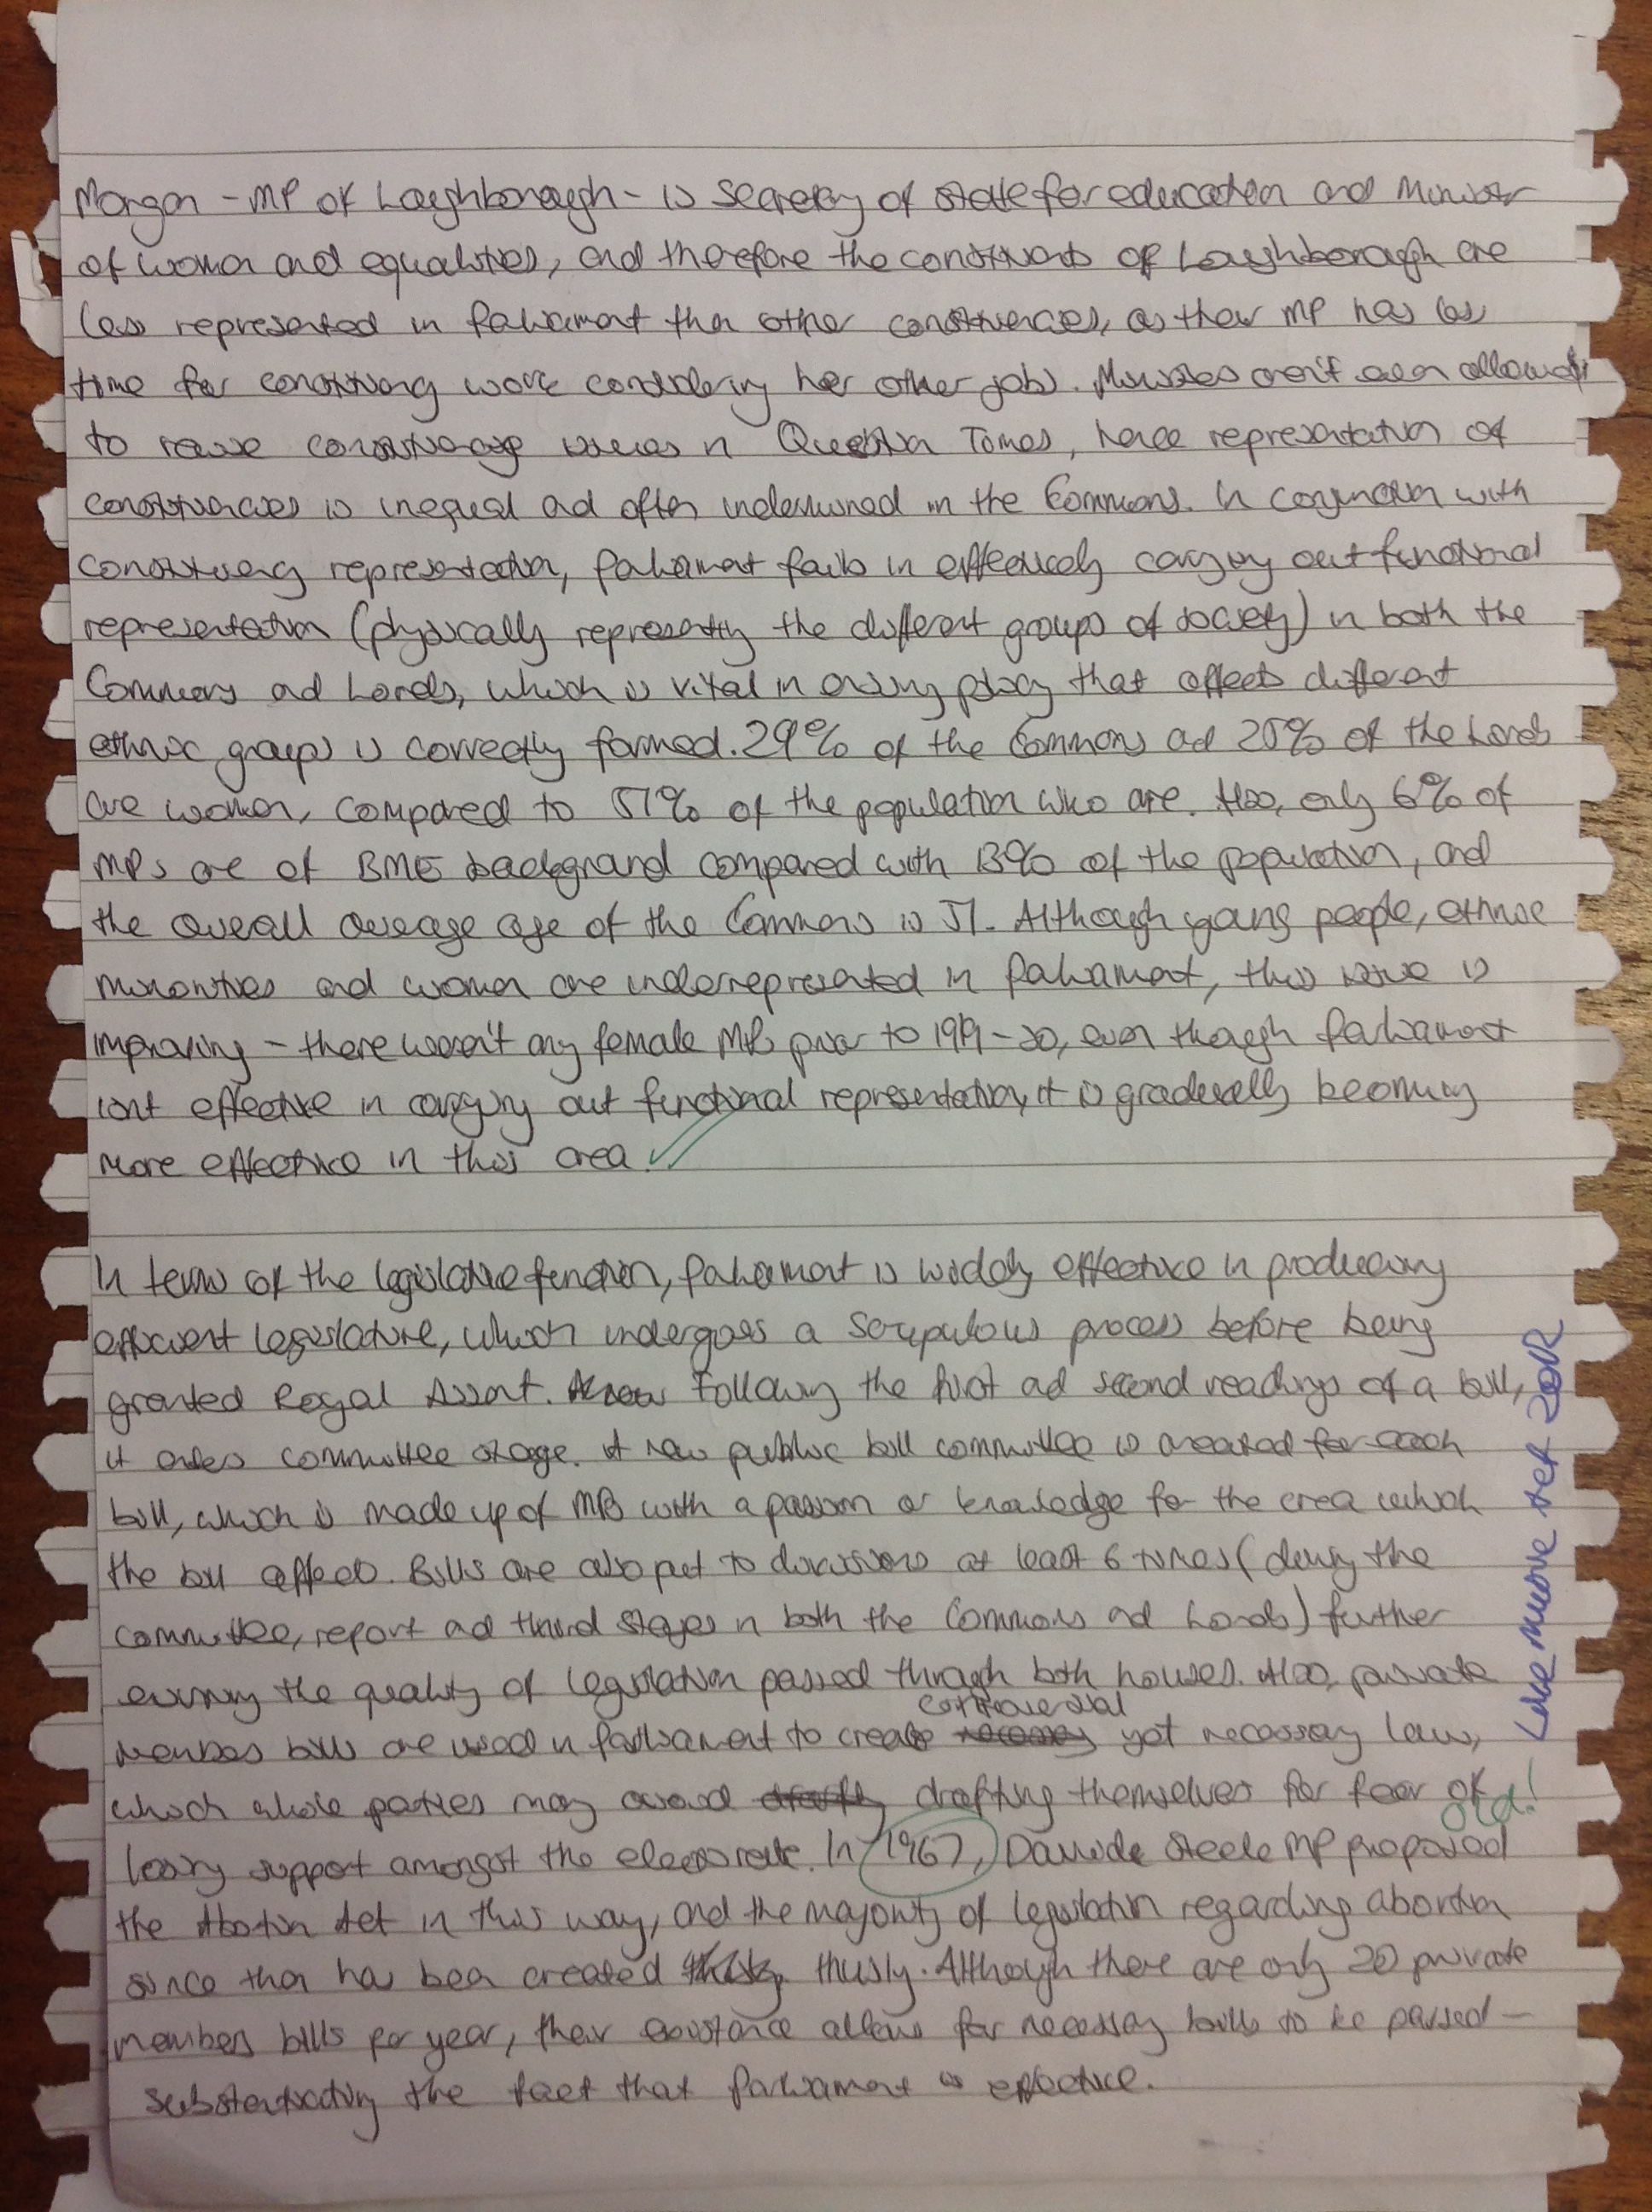 Morgan - MP of Loughborough - is Secretary of state for education and Minister
of women and equalities, and therefore the constituents of Loughborough are
less represented in Parliament than other constituencies, as their MP has less
time for constituency work considering her other jobs. Ministers aren't even allowed
to raise constituency issues in Question Times, hence representation of
constituencies is inequal and often undermined in the Commons. In conjunction with
constituency representation, Parliament fails in effectively carrying out functional
representation (physically representing the different groups of society) in both the
Commons and Lords, which is vital in ensuring policy that affects different
ethnic groups is correctly formed. 29% of the Commons and 25% of the Lords
are women, compared to 51% of the population who are. Also, only 6% of
MPs are of BME background compared with 13% of the population, and
the overall average age of the Commons is 51. Although young people, ethnic
minorities and women are underrepresented in Parliament, this issue is
improving - there weren't any female MPs prior to 1919-20, even though Parliament
isnt effective in carrying out functional representation, it is gradually becoming
more effective in this area.
In terms of the legislative function, Parliament is widely effective in producing
efficient legislature, which undergoes a scrupulous process before being
granted Royal Assent. Following the first and second readings of a bill,
it enters committee stage. A new public bill committee is created for each
bill, which is made up of MPs with a passion or knowledge for the area which
the bill affects. Bills are also put to discussions at least 6 times (during the
committee, report and third stages in both the Commons and Lords) further
ensuring the quality of legislation passed through both houses. Also, private
members bills are used in Parliament to create controversial yet necessary laws,
which whole parties may avoid drafting themselves for fear of
losing support amongst the electorate. In 1967, Davide Steele MP proposed
old!
the Abortion Act in this way, and the majority of legislation regarding abortion
since then has been created thusly. Although there are only 20 private
members bills per year, their existance allows for necessary bills to be passed -
substantiating the fact that Parliament is effective.
Use move set 2012